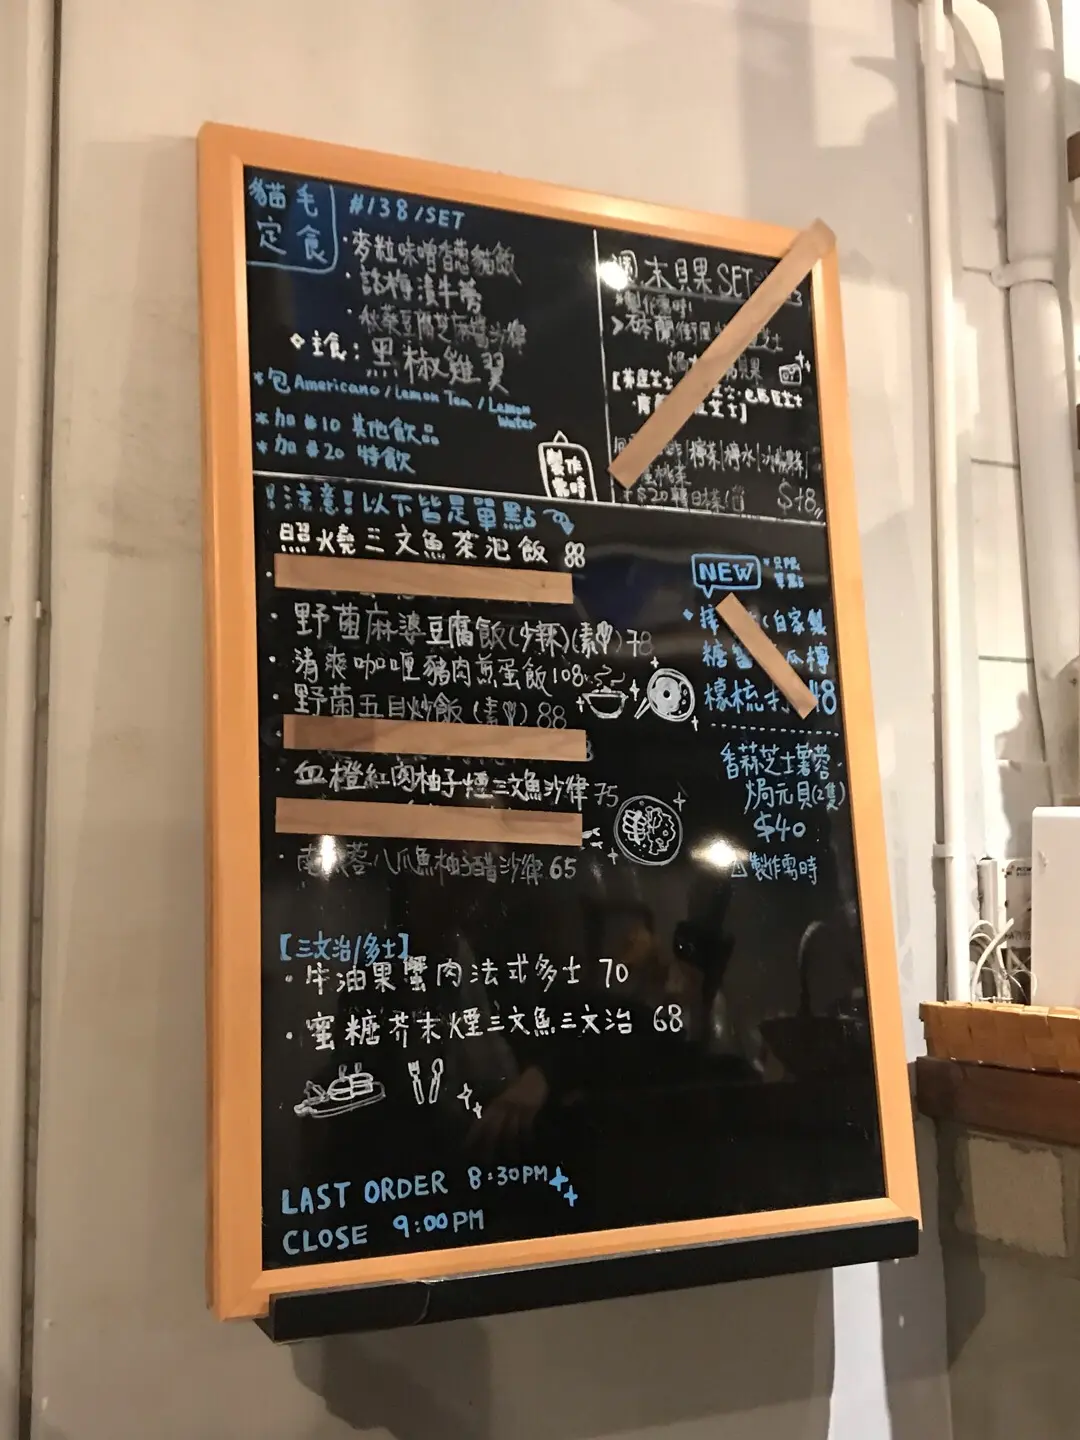 貓毛
定食
#138/SET
·麥粒味噌香蔥貓飯
·話梅漬牛蒡
·秋葵豆腐芝麻醬沙律
主食:黑椒雞翼
*包Americano/Lemon Tea/Lemon
Water
*加#10 其他飲品
*加#20 特飲
製作
需時
週末貝果SET
製作需時!
貝果
檸茶|檸水|
$20
!注意!以下皆是單點
照燒三文魚茶泡飯 88
·野菌麻婆豆腐飯(少辣)(素) 78
·清爽咖喱豬肉煎蛋飯 108
·野菌五目炒飯(素) 88
血橙紅肉柚子煙三文魚沙律 75
八爪魚柚子醋沙律 65
NEW
*只限
單點
(自家製
糖
檬梳 48
香蒜芝士薯蓉
焗元貝(2隻)
$40
製作需時
【三文治/多士】
·牛油果蟹肉法式多士 70
·蜜糖芥末煙三文魚三文治 68
LAST ORDER 8:30PM
CLOSE 9:00PM